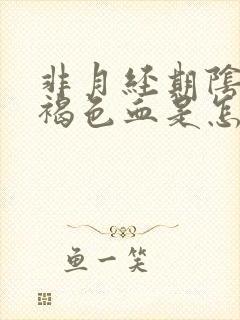 非月経期陰
褐色血是怎
鱼一笑